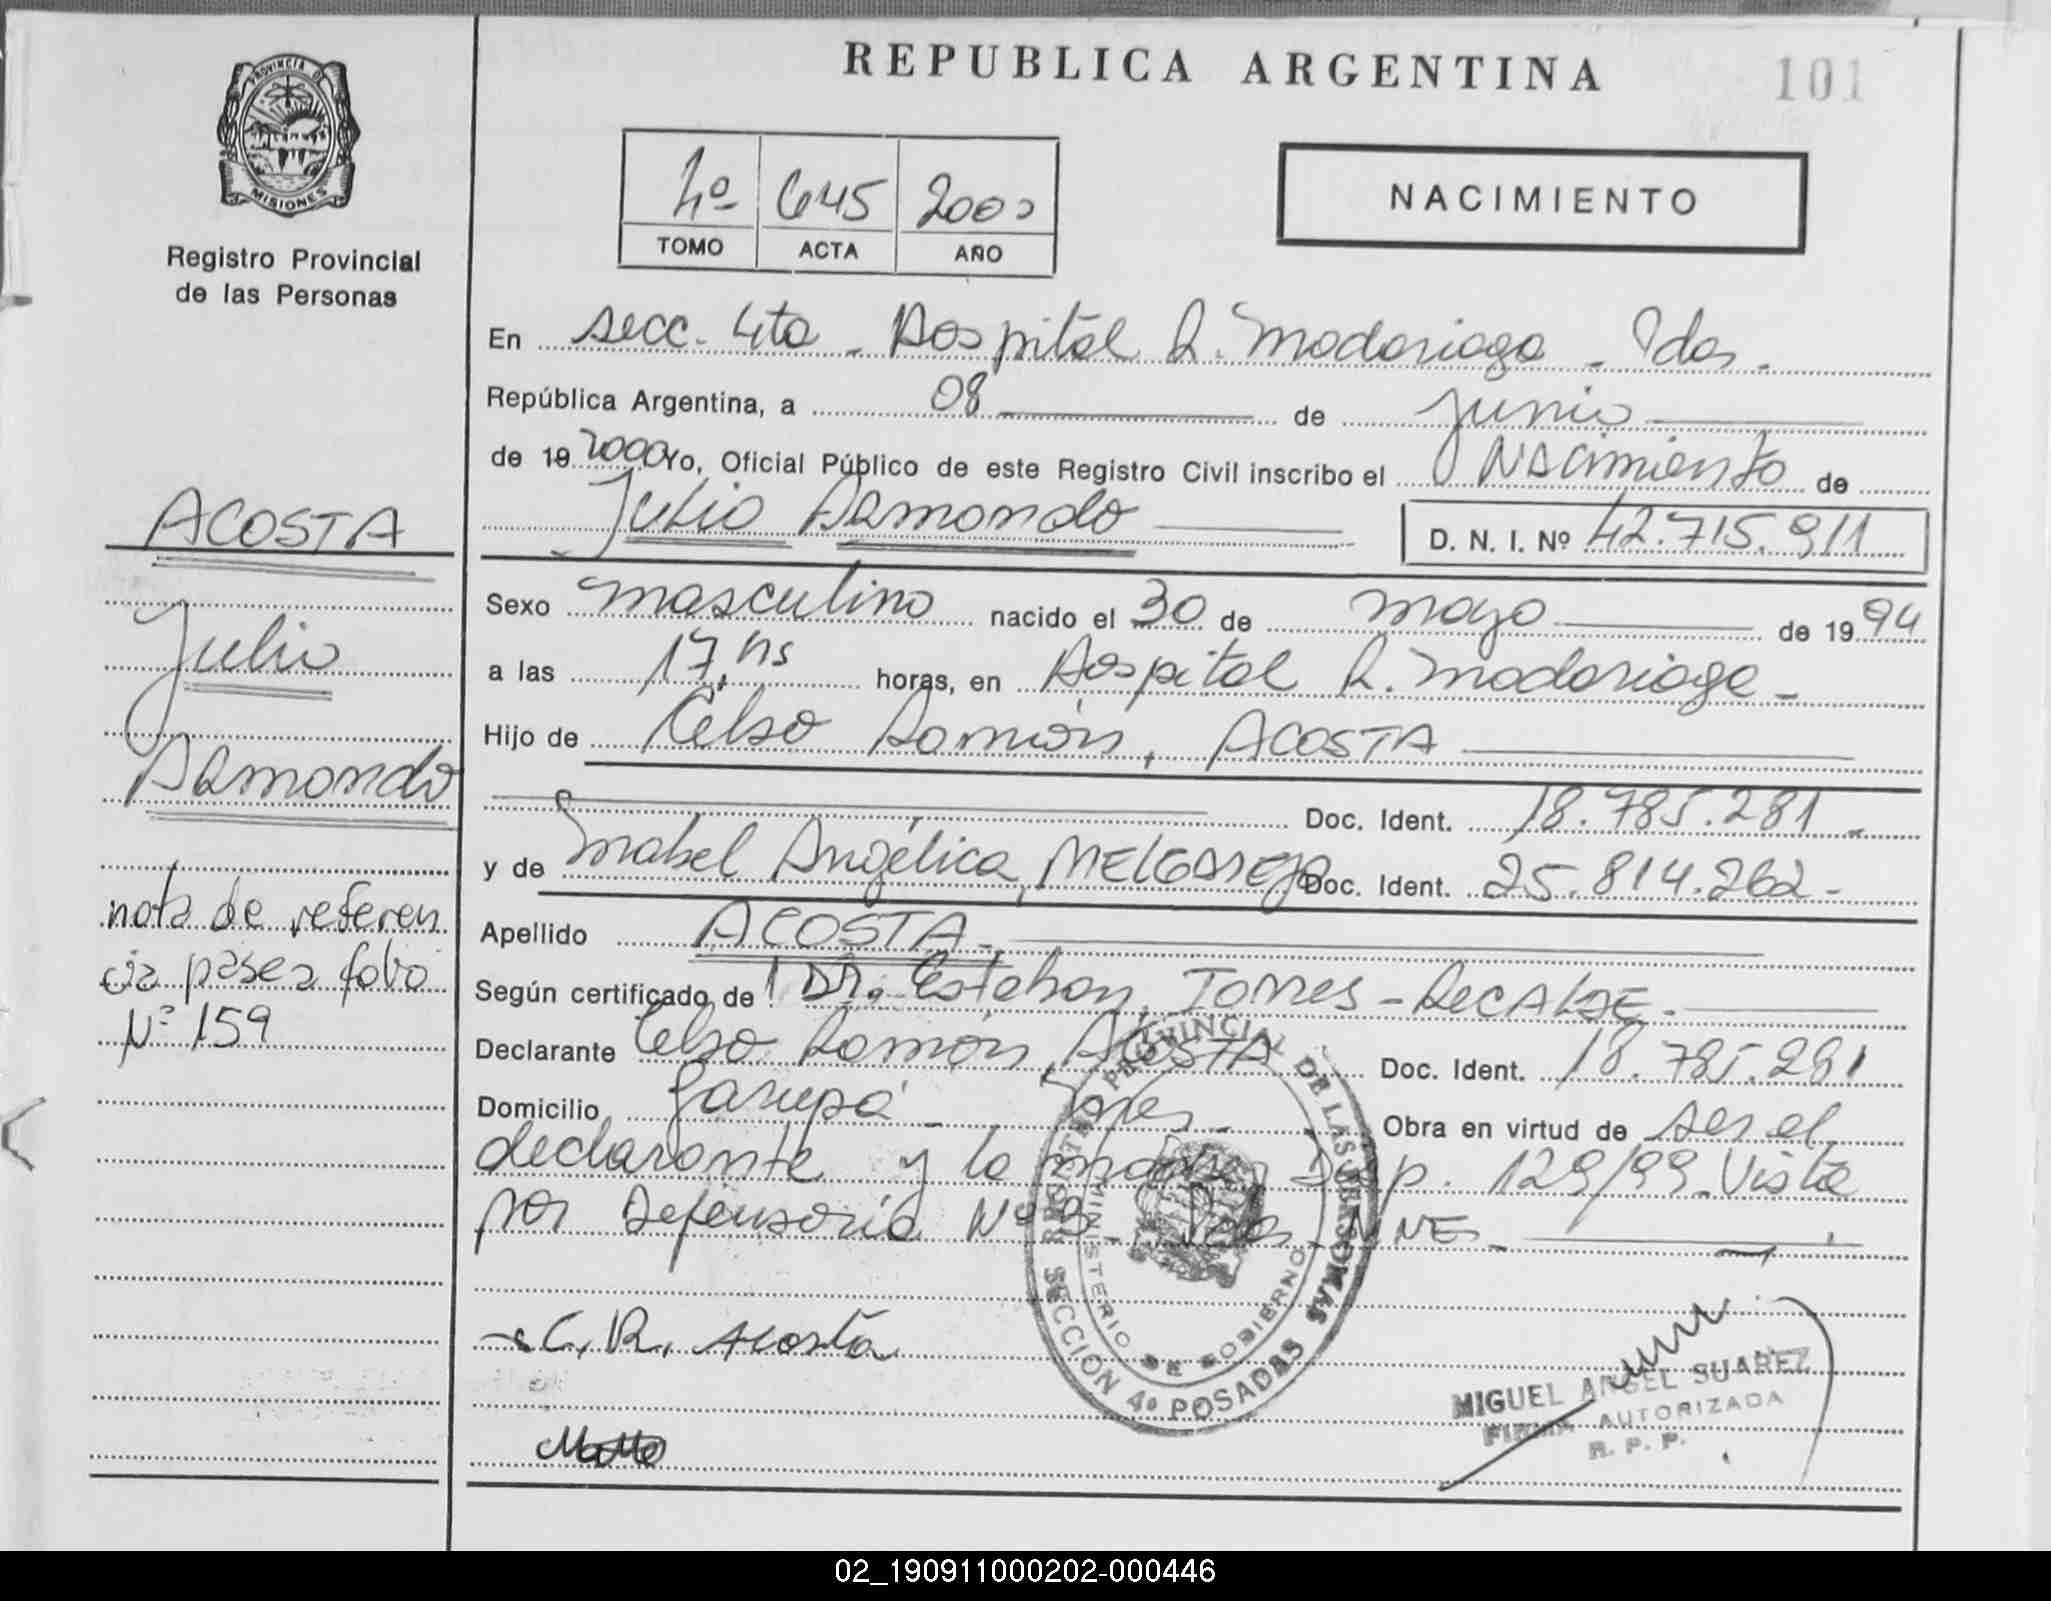 REPUBLICA ARGENTINA
101
PROVINCIA DE
MISIONES
Registro Provincial
de las Personas
4º 645 2000
TOMO ACTA AÑO
NACIMIENTO
En secc. 4ta - Hospital R. Madariaga - Pdas.
República Argentina, a 08 de junio
de 19 2000 Yo, Oficial Público de este Registro Civil inscribo el Nacimiento de
Julio Armando
D. N. I. Nº 42.715.911
ACOSTA
Julio
Armando
nota de referen
cia pase a folio
Nº 159
Sexo masculino nacido el 30 de mayo de 1994
a las 17,hs horas, en Hospital R. Madariaga -
Hijo de Celso Ramón, ACOSTA
Doc. Ident. 18.785.281 -
y de Mabel Angélica, MELGAREJO Doc. Ident. 25.814.262 -
Apellido ACOSTA -
Según certificado de Dr. Esteban Torres - RECALDE -
Declarante Celso Ramón, ACOSTA Doc. Ident. 18.785.281
Domicilio Garupá - Obra en virtud de ser el
declarante y la madre Disp. 129/99 - Vista
por Defensoría Nº 3 - Pdas. MNES -
REGISTRO PROVINCIAL DE LAS PERSONAS
MINISTERIO DE GOBIERNO
SECCION 4º POSADAS
C. R. Acosta
MIGUEL ANGEL SUAREZ
FIRMA AUTORIZADA
R. P. P.
02_190911000202-000446